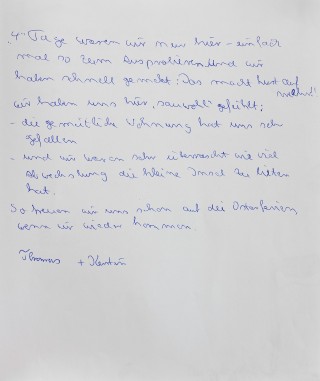 "4" Tage waren wir nun hier - einfach
mal so zum Ausprobieren. Und wir
haben schnell gemerkt: Das macht Lust auf
mehr!
Wir haben uns hier "sauwohl" gefühlt;
- die gemütliche Wohnung hat uns sehr
gefallen
- und wir waren sehr überrascht wie viel
Abwechslung die kleine Insel zu bieten
hat.
So freuen wir uns schon auf die Osterferien,
wenn wir wieder kommen.
Thomas +